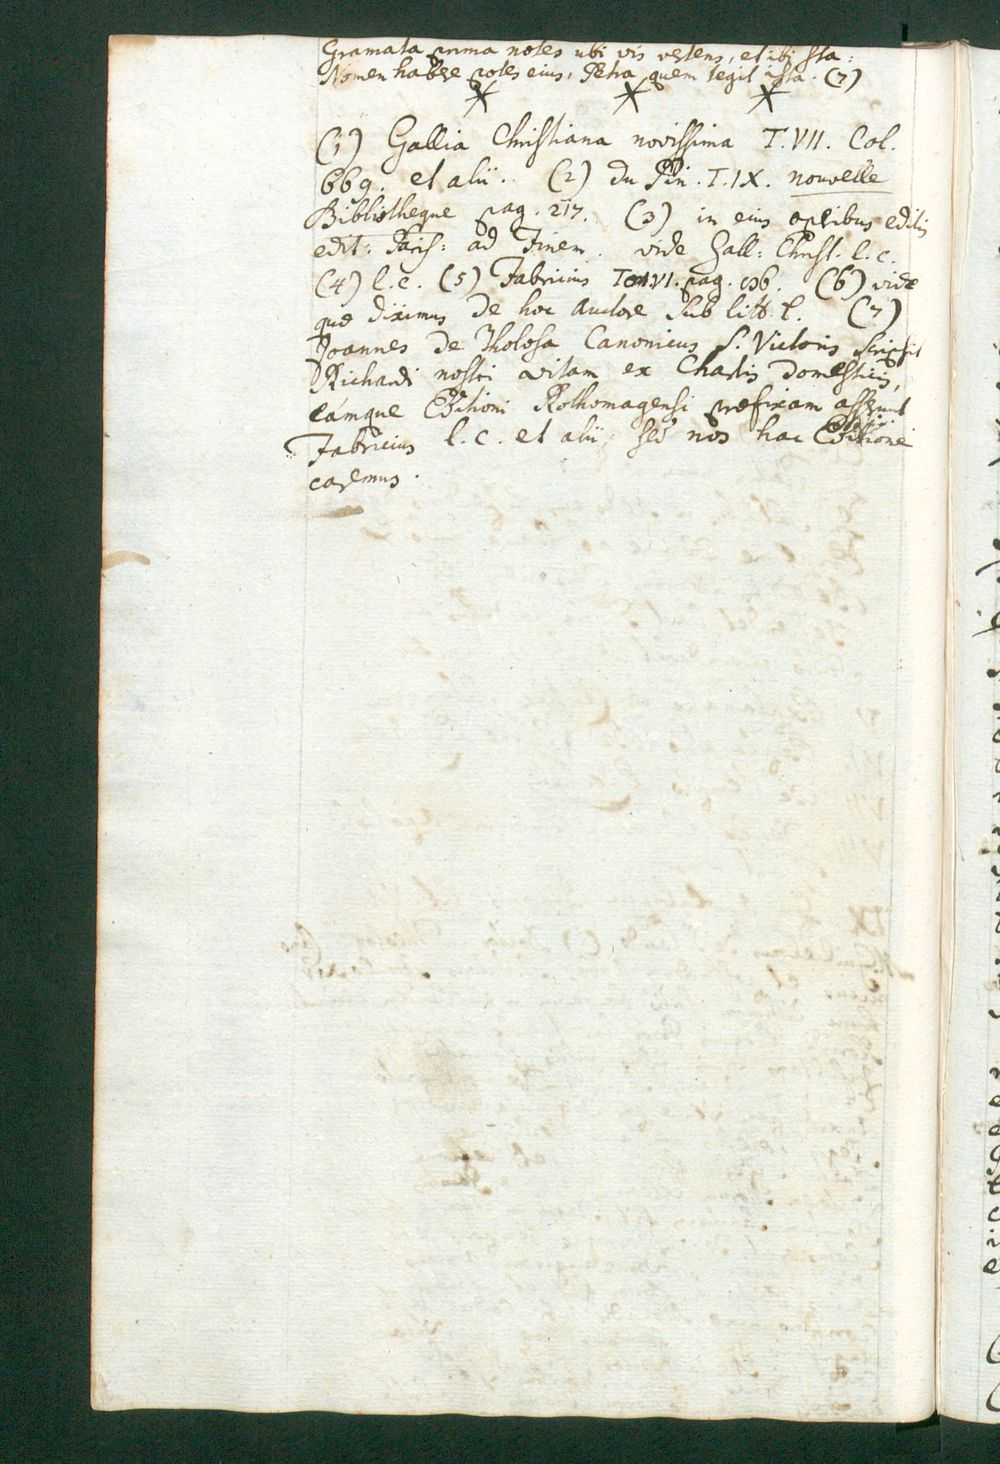 Gramata prima notes ubi vis vertens, et ibi sta:
Nomen habere potes eius, Petra quem tegit ista. (7)
(1) Gallia Christiana novissima T. VII. Col.
669. et alii. (2) du Pin. T. IX. nouvelle
Bibliotheque pag. 217. (3) in eius operibus editis
edit: Paris: ad Finem. vide Gall: Christ. l. c.
(4) l. c. (5) Fabricius Tom VI. pag. (6) vide
quæ diximus de hoc Auctore sub litt. (7)
Joannes de Tholosa Canonicus S. Victoris scripsit
Richardi nostri vitam ex Chartis domesticis,
eámque Editioni Rothomagensi præfixam asserunt
Fabricius l. c. et alii, sed nos hac Editione
caremus.